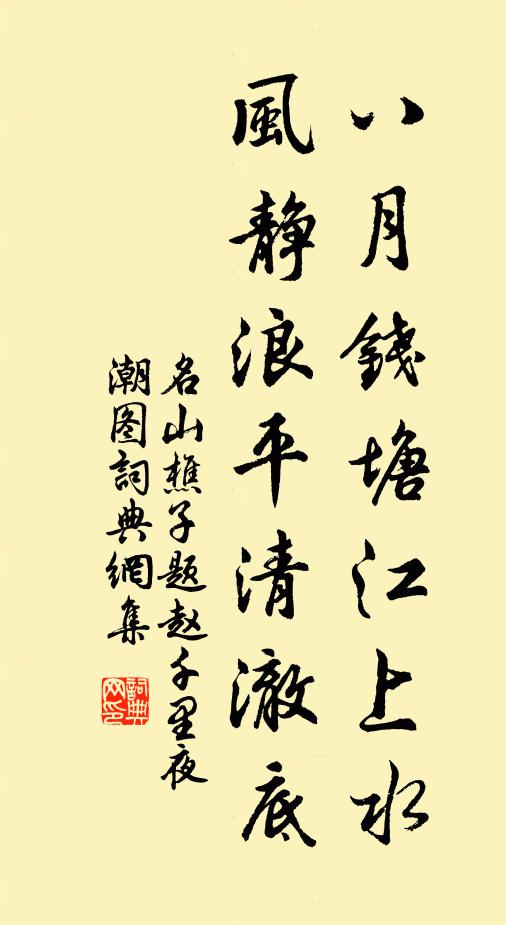 八月錢塘江上水
風静浪平清澈底
名山樵子题赵千里夜
潮图詞典網集
詞典
网印